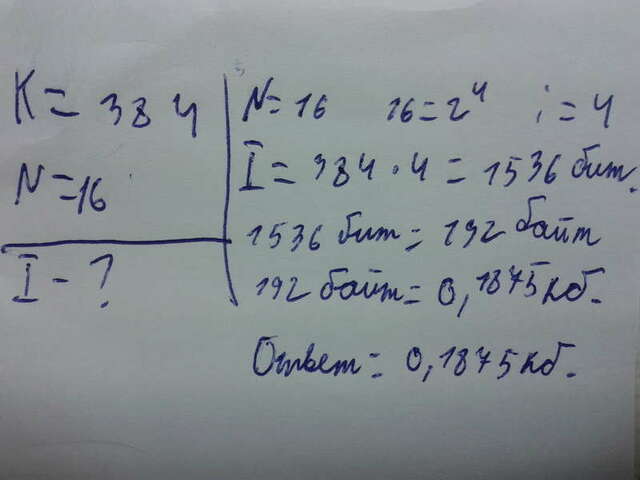 K = 384
N = 16
I - ?
N = 16 16 = 2⁴ i = 4
I = 384 · 4 = 1536 бит.
1536 бит = 192 байт
192 байт = 0,1875 кб.
Ответ = 0,1875 кб.